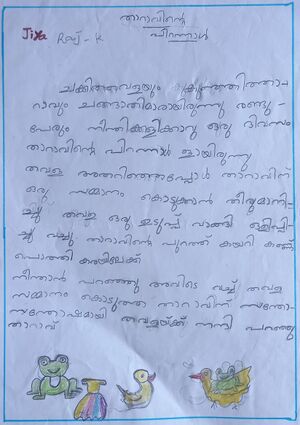 താറാവിൻ്റെ
പിറന്നാൾ
Jiya Raj - K
ചങ്ങാതിമാരായിരുന്നു രണ്ടു-
പേരും നീന്തിക്കളിക്കാറു ഒരു ദിവസം
താറാവിൻ്റെ പിറന്നാൾ ആയിരുന്നു
തവള അതറിഞ്ഞപ്പോൾ താറാവിന്
ഒരു സമ്മാനം കൊടുക്കാൻ തീരുമാനി-
ച്ചു തവള ഒരു ഉടുപ്പ് വാങ്ങി ഒളിപ്പി-
ച്ചു വച്ചു താറാവിൻ്റെ പുറത്ത് കയറി കണ്ണ്
പൊത്തി കരയിലേക്ക്
നീന്താൻ പറഞ്ഞു അവിടെ വച്ച് തവള
സമ്മാനം കൊടുത്തു താറാവിന് സന്തോ-
സന്തോഷമായി തവളയ്ക്ക് നന്ദി പറഞ്ഞു
താറാവ്